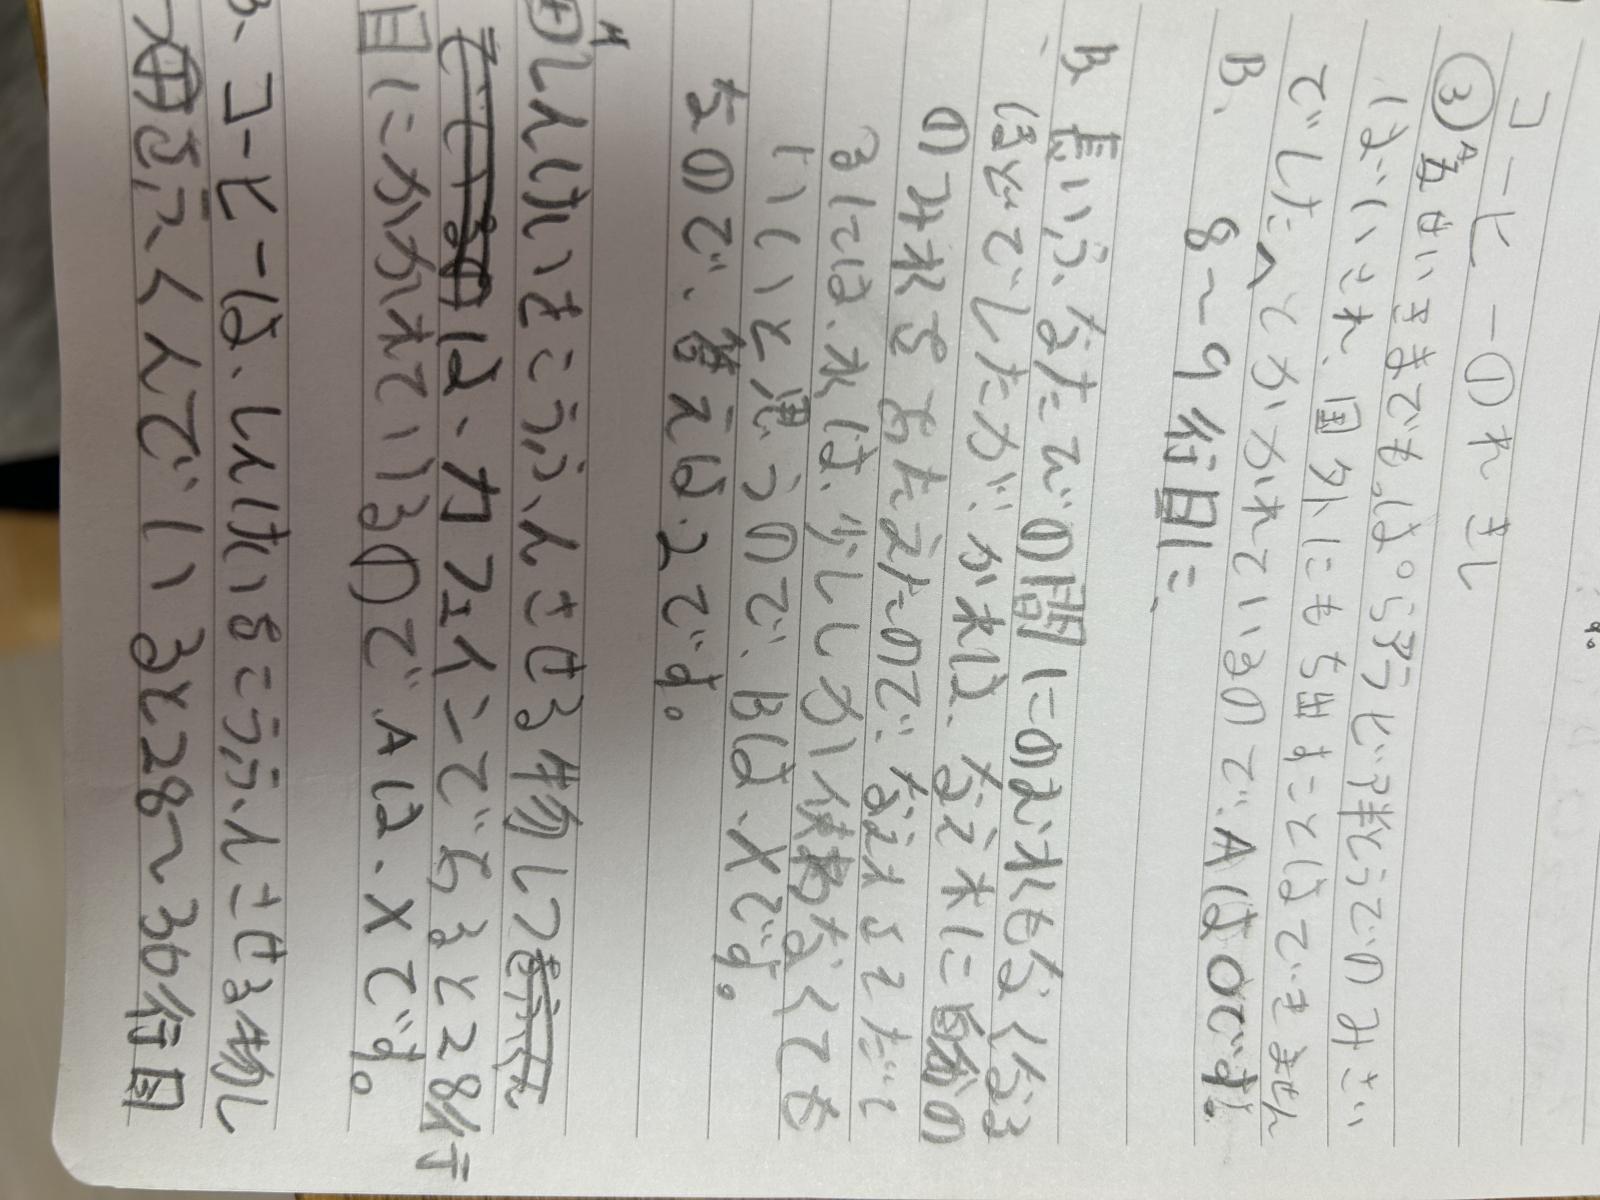 コーヒーのれきし
③A 五せいきまでも、はアラビア半とうでのみさい
ばいされ、国外にもち出すことはできません
でした。とかかれているので、Aは〇です。
B、 8〜9行目に、
B 長いふなたびの間にのむ水もなくなる
ほどでしたが、かれは、なえ木に自分の
のみ水をあたえたので、なえ木をそだて
るには、水は、少ししか使わなくても
いいと思うので、Bは、Xです。
なので、答えは、2です。
④A しんけいをこうふんさせる物しつ
は、カフェインであると28行
目にかかれているので、Aは、Xです。
B、コーヒーは、しんけいをこうふんさせる物し
つをふくんでいると28〜30行目